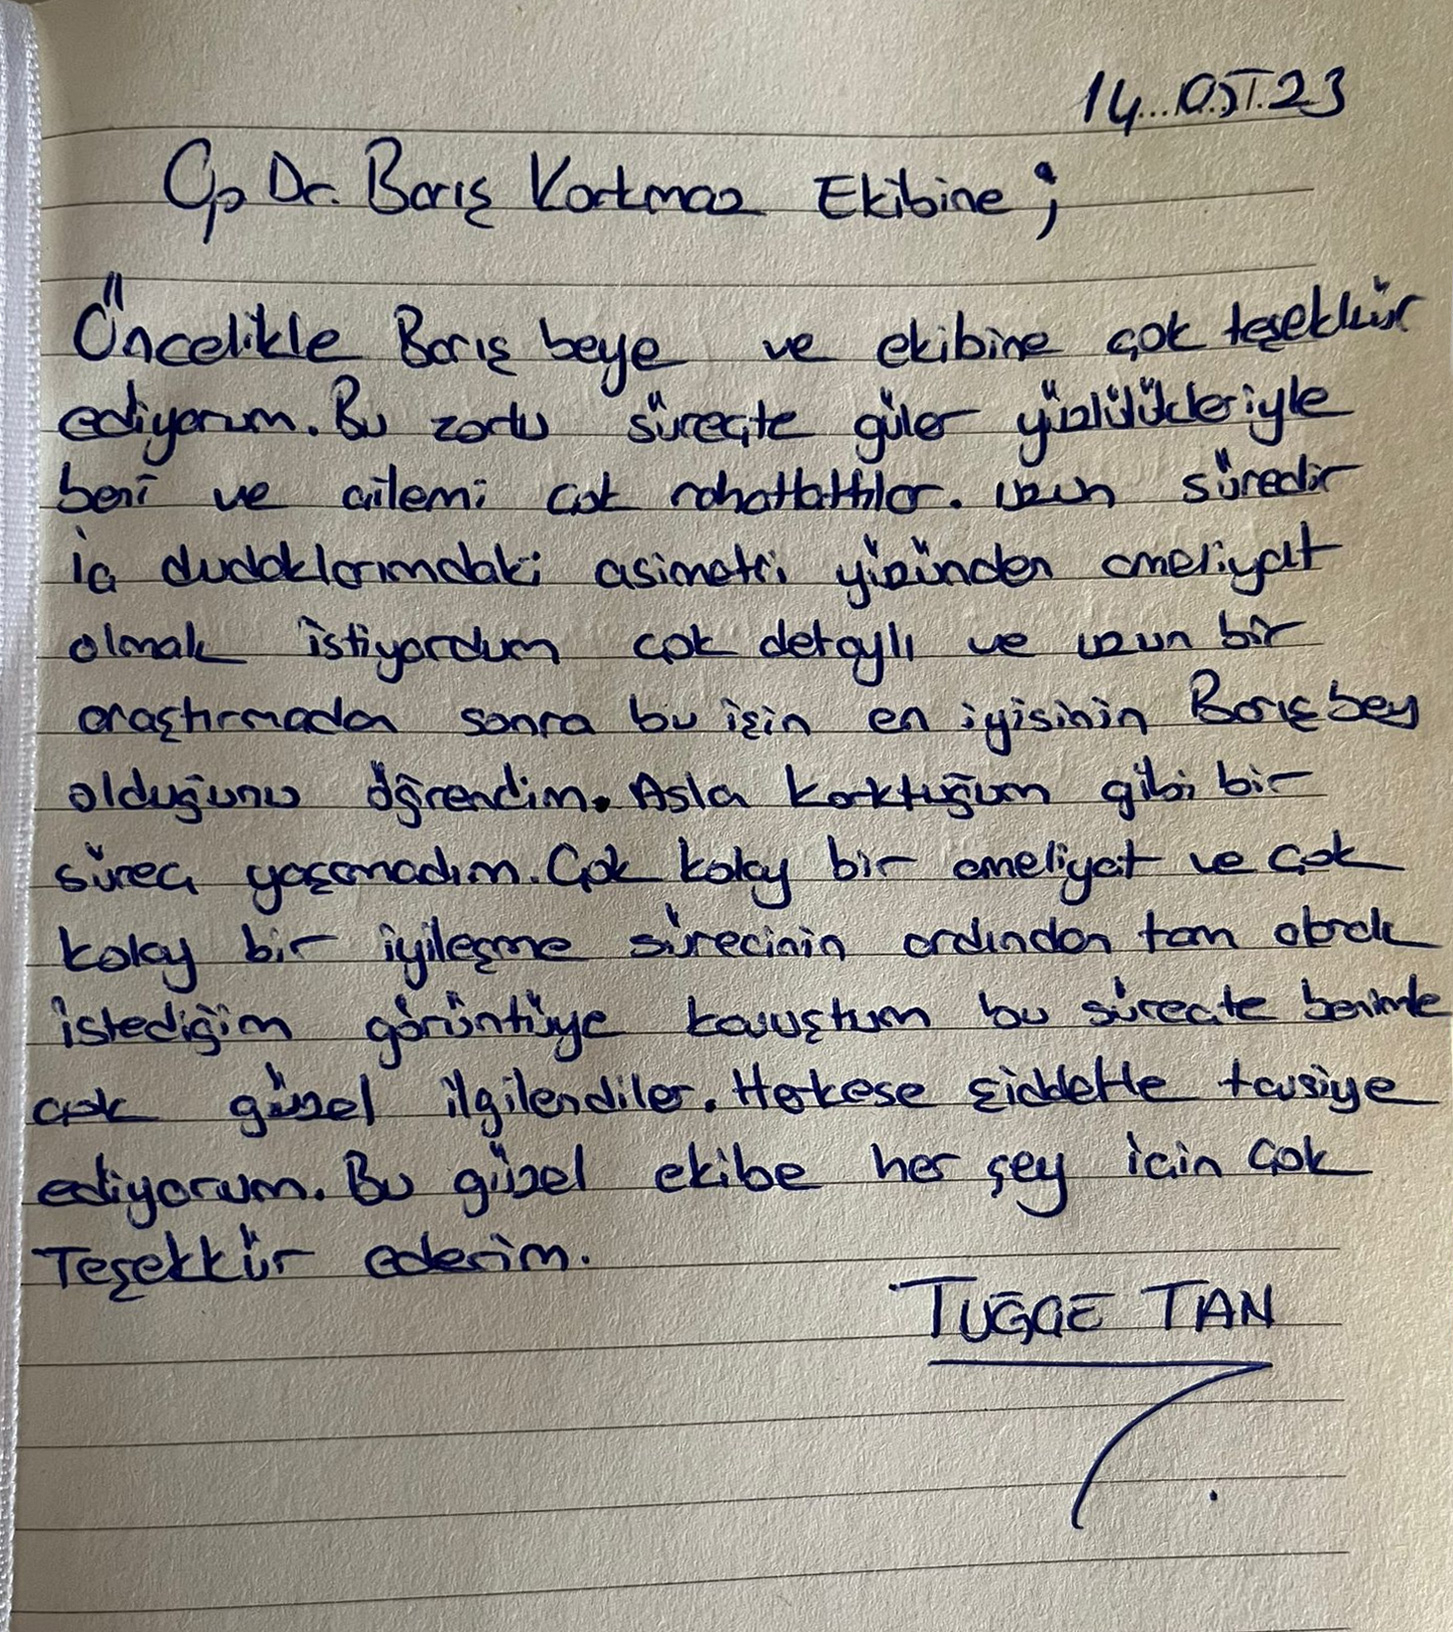 14...05.23
Op Dr. Barış Korkmaz Ekibine ;
Öncelikle Barış beye ve ekibine çok teşekkür
ediyorum. Bu zorlu süreçte güler yüzlülükleriyle
beni ve ailemi çok rahatlattılar. uzun süredir
iç dudaklarımdaki asimetri yüzünden ameliyat
olmak istiyordum çok detaylı ve uzun bir
araştırmadan sonra bu işin en iyisinin Barış bey
olduğunu öğrendim. Asla korktuğum gibi bir
süreç yaşamadım. Çok kolay bir ameliyat ve çok
kolay bir iyileşme sürecinin ardından tam olarak
istediğim görüntüye kavuştum bu süreçte benimle
çok güzel ilgilendiler. Herkese şiddetle tavsiye
ediyorum. Bu güzel ekibe her şey için çok
Teşekkür ederim.
TUĞÇE TAN